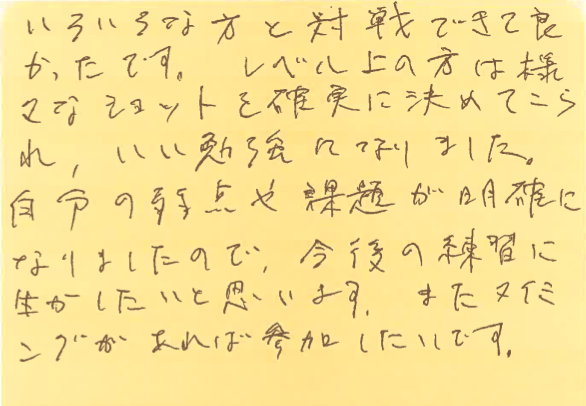 いろいろな方と対戦できて良
かったです。 レベル上の方は様
々なショットを確実に決めてこら
れ、いい勉強になりました。
自分の弱点や課題が明確に
なりましたので、今後の練習に
生かしたいと思います。またタイミ
ングがあれば参加したいです。